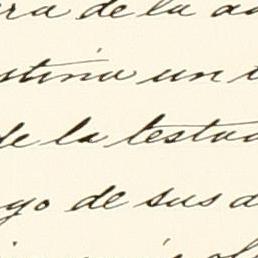 ra de la a
stina un t
de la testa
yo de sus d